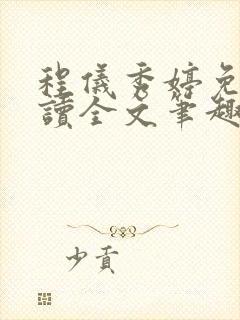 程儀秀婷免
讀全文筆趣
少貢